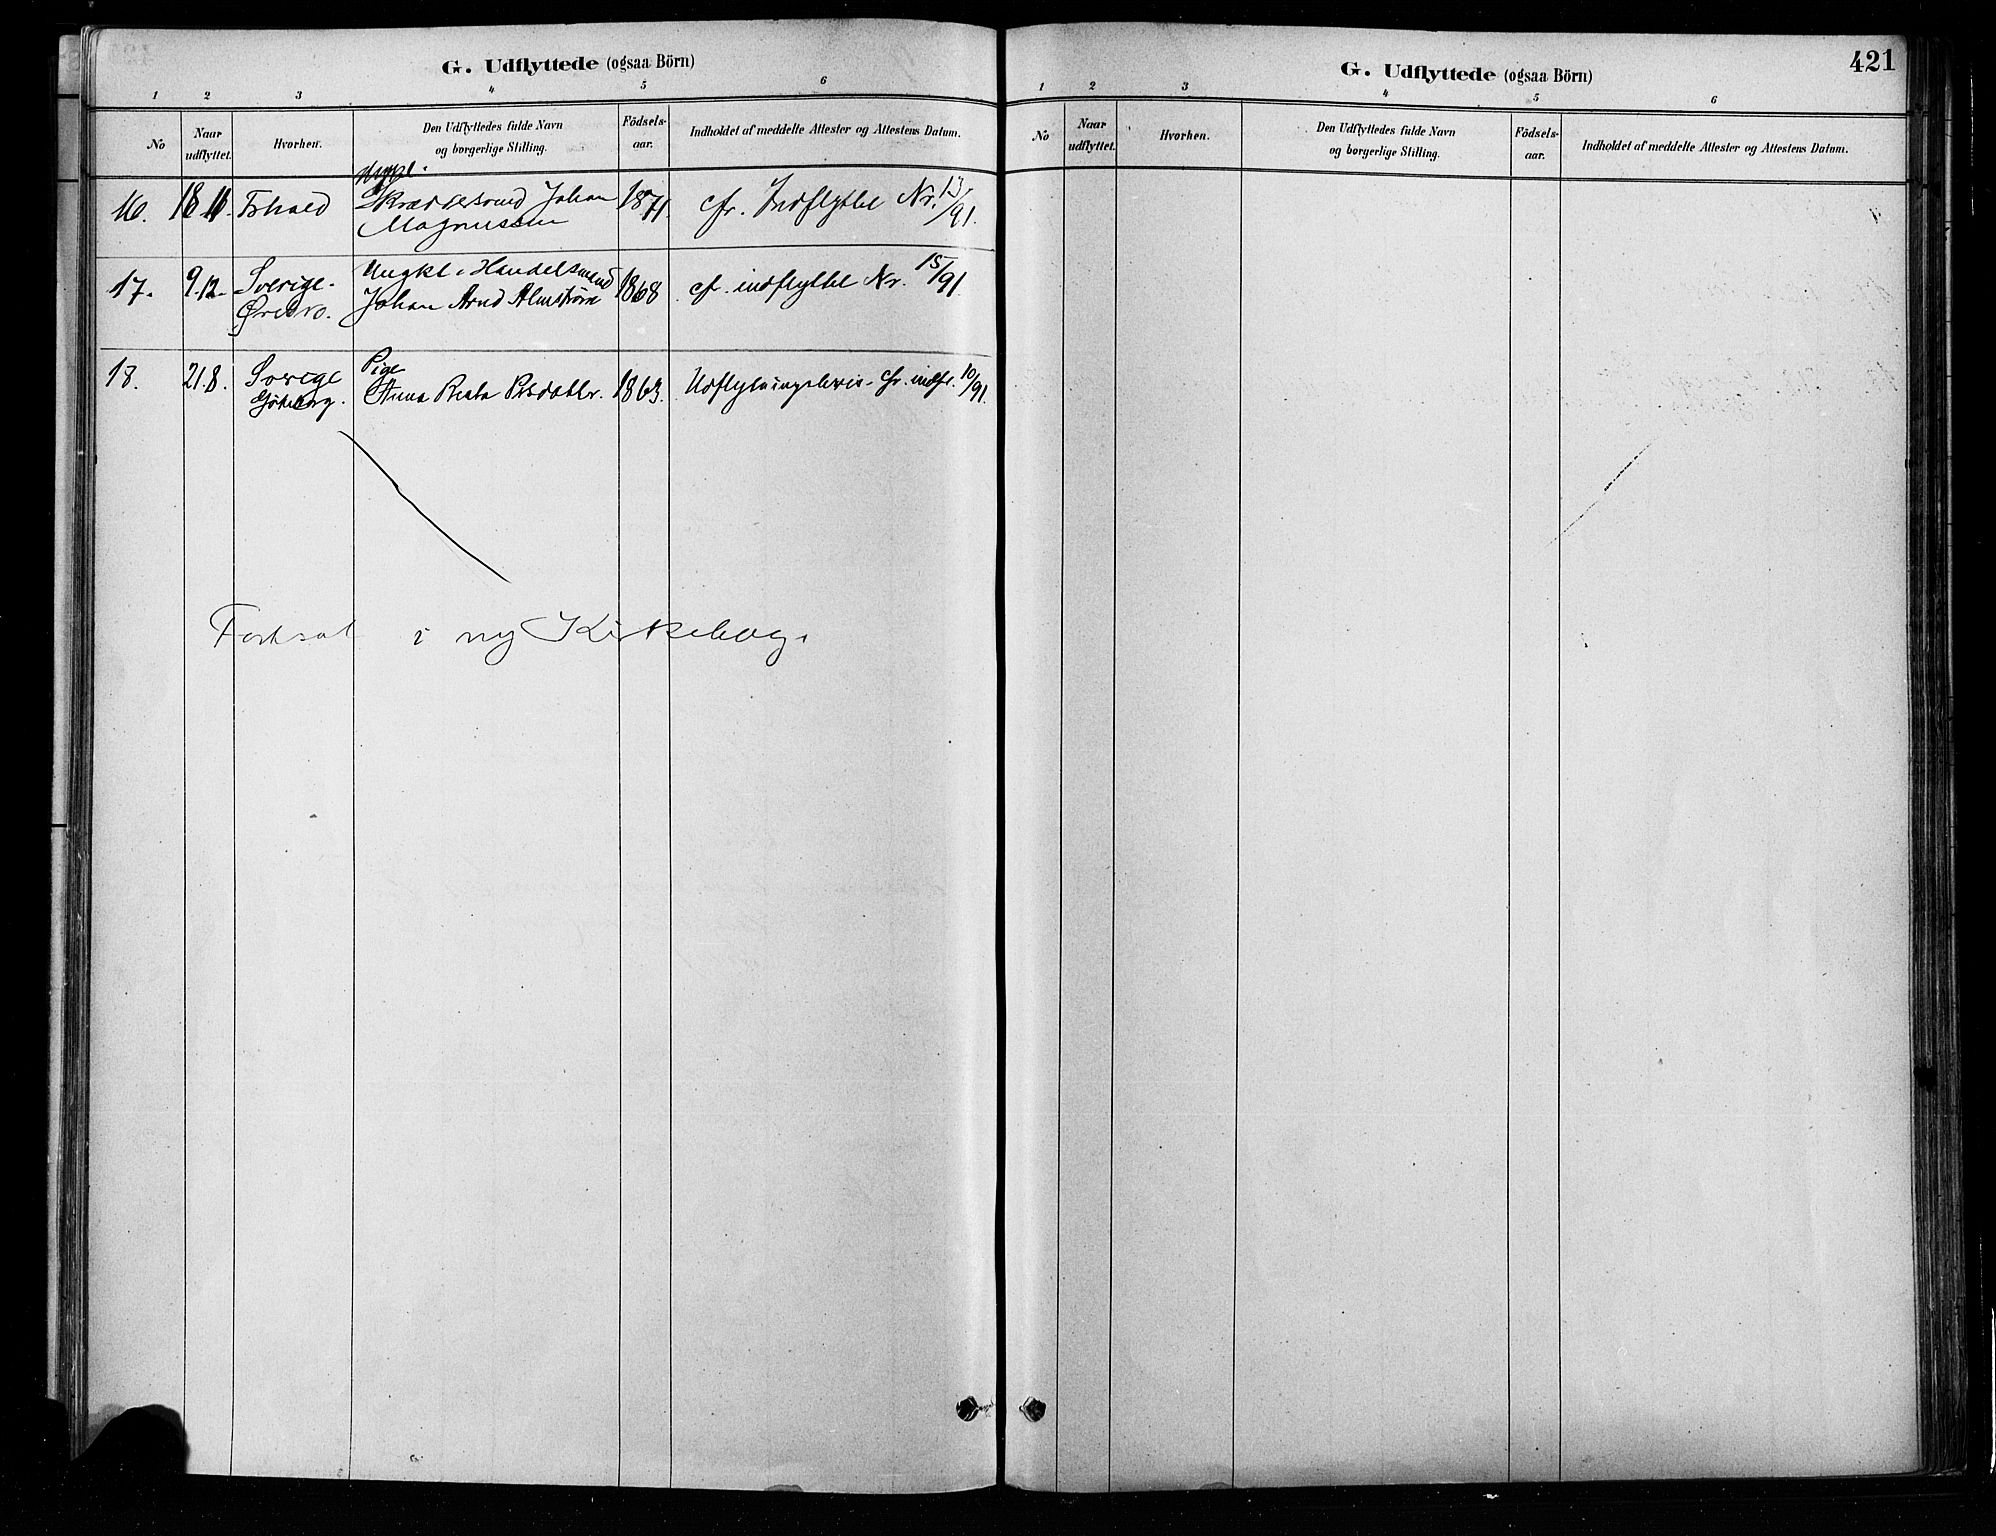 G. Udflyttede (ogsaa Börn)
1 2 3 4 5 6
No Naar udflyttet. Hvorhen. Den Udflyttedes fulde Navn og borgerlige Stilling. Födsels-aar. Indholdet af meddelte Attester og Attestens Datum.
Ungkl.
16. 18.11. Frhald Skræddersvend Johan 1871. cfr. Indflyttet Nr. 13/91.
Magnussen
17. 9.12. Sverige. Ungkl. Handelsmand 1868 cfr. indflyttet Nr. 15/91.
Ørebro. Johan Arvid Almstrøm
18. 21.8. Sverige Pige 1863. Udflytningsbevis cfr. indfl. 10/91.
Gøteborg. Anna Beata
Fortsat i ny Kirkebog.
421
G. Udflyttede (ogsaa Börn)
1 2 3 4 5 6
No Naar udflyttet. Hvorhen. Den Udflyttedes fulde Navn og borgerlige Stilling. Födsels-aar. Indholdet af meddelte Attester og Attestens Datum.